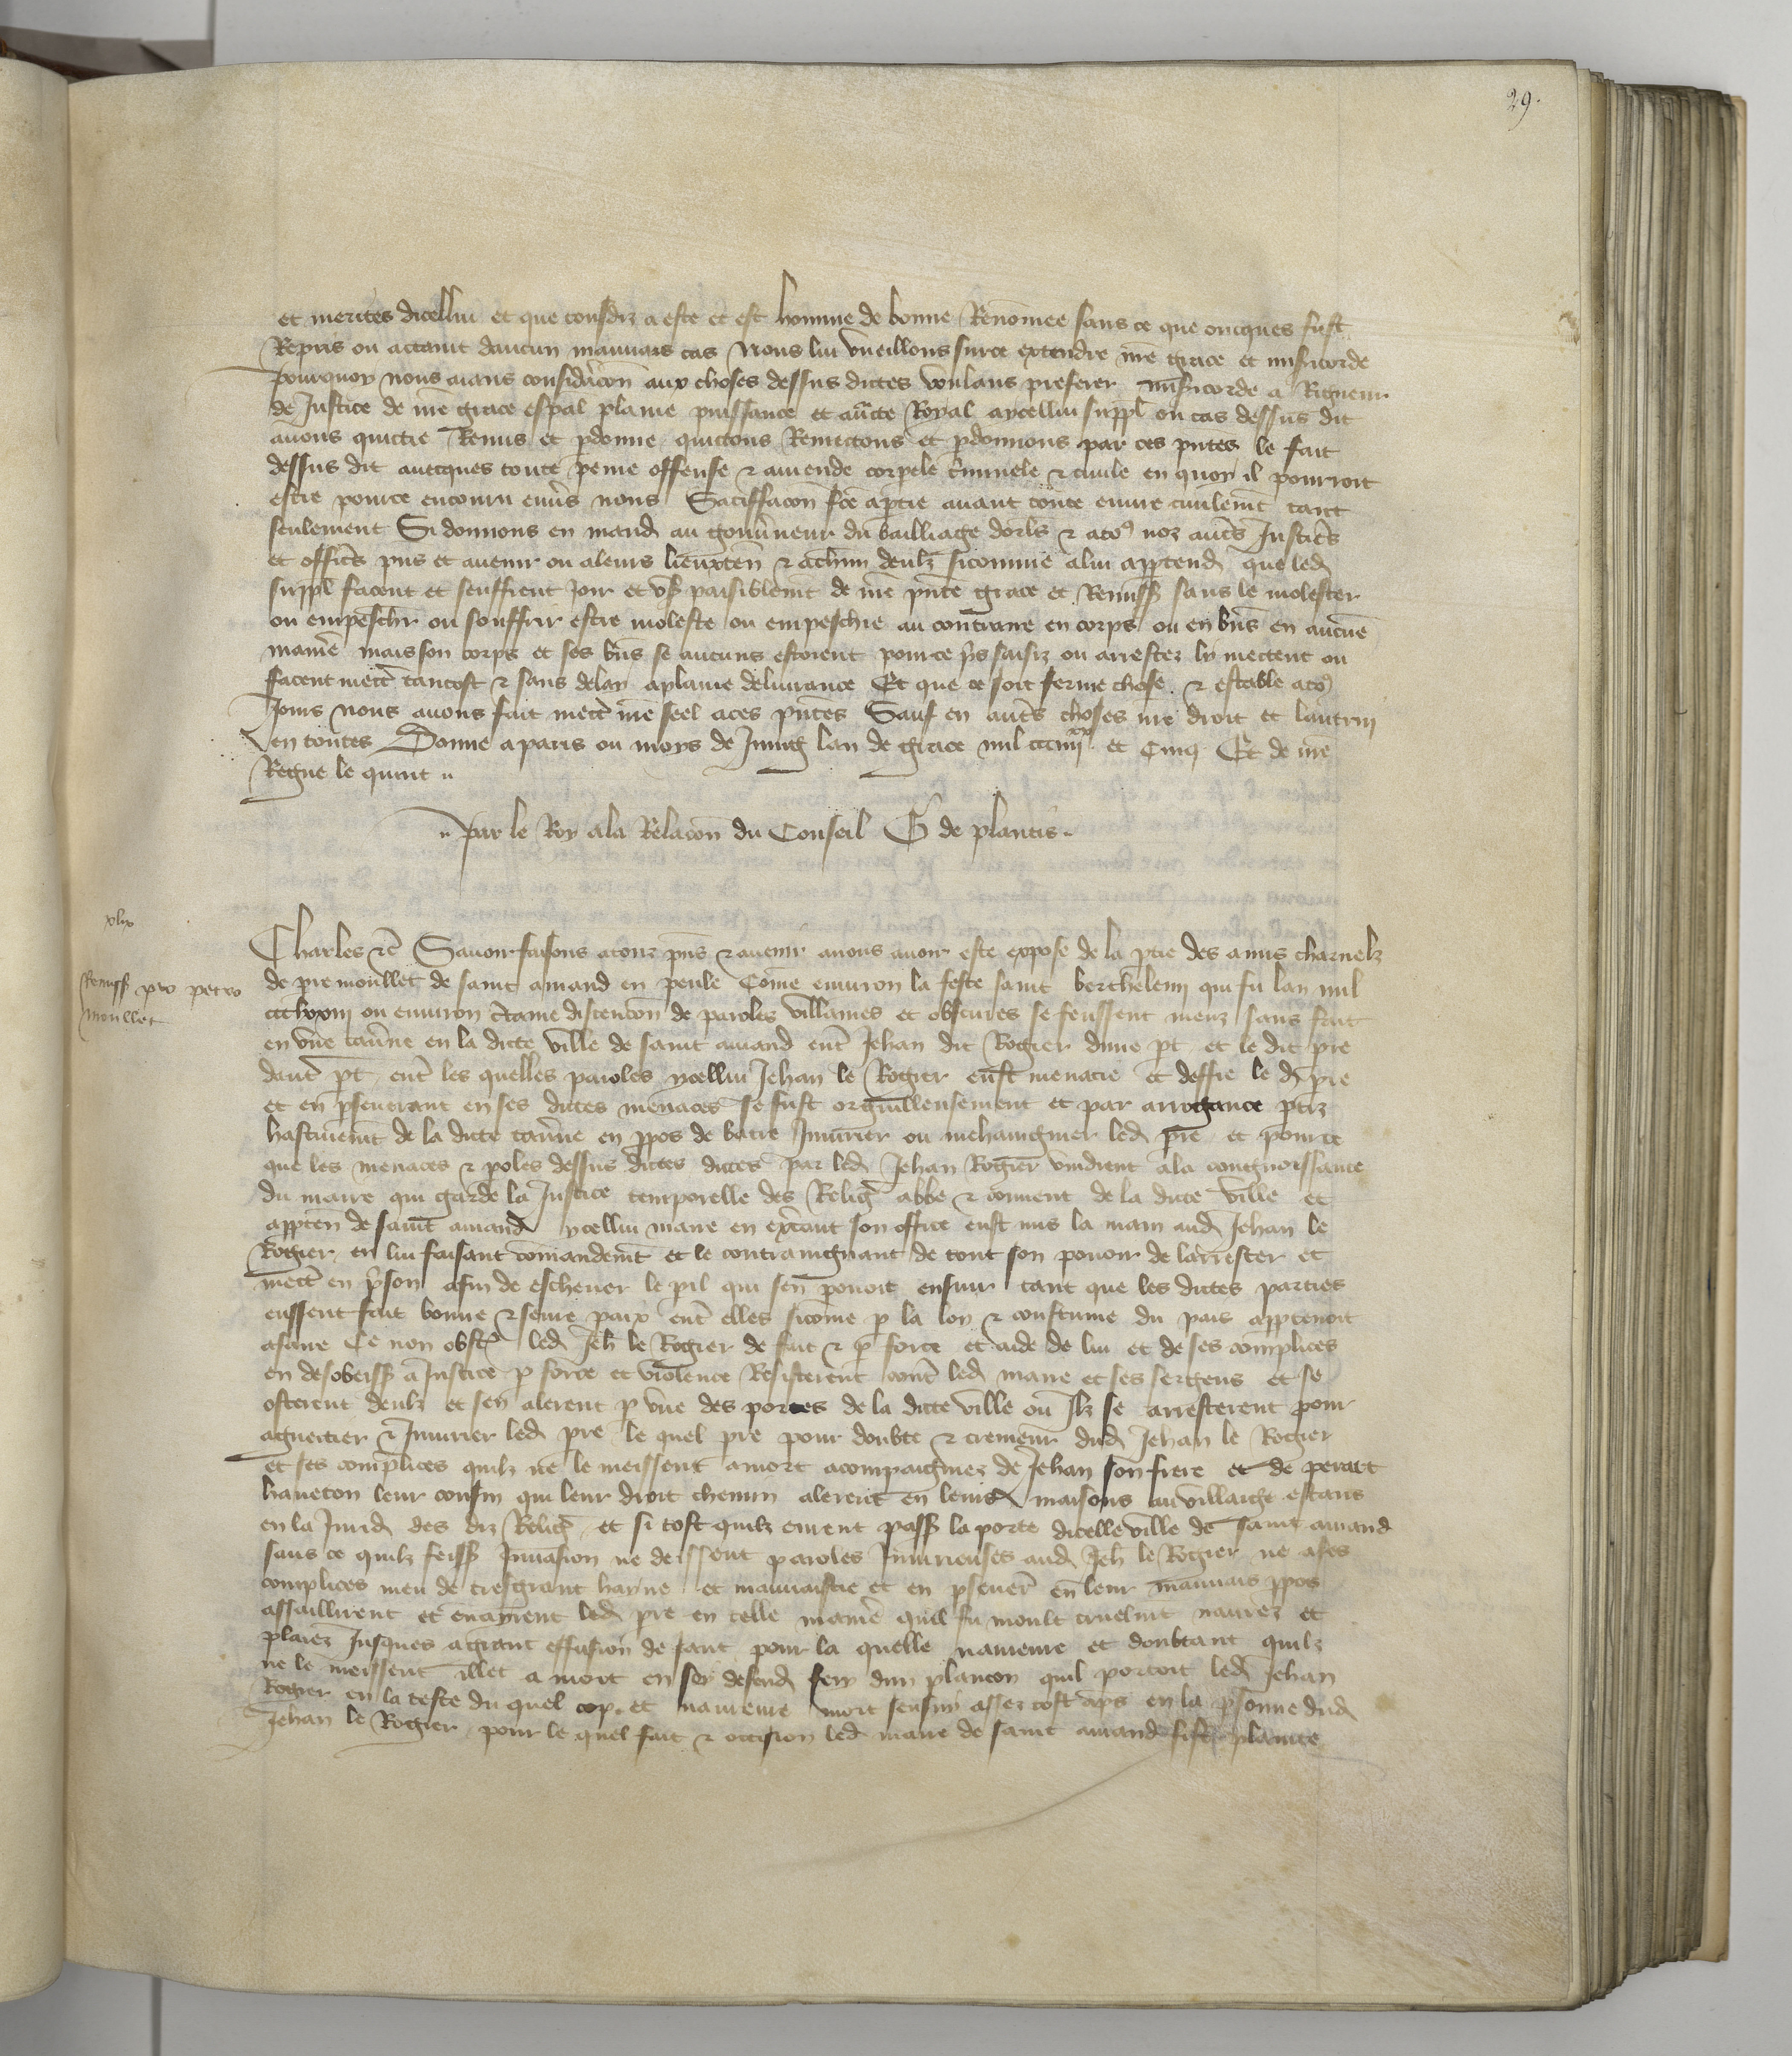 29.
et merites dicellui et que tousdiz a este et est homme de bonne Renōmee sans ce que onicques fust
Repris ou actaint daucun mauvais cas Nous lui vueillons surce extendre nr̄e grace et misericorde
pourquoy nous aians considāc̄on aux choses dessus dictes voulans preferer misericorde a Rigueur
de Justice de nr̄e grace esp̄al plaine puissance et auc̄te Royal aycellui suppl̄ ou cas dessus dit
avons quictie Remis et p̄donne quictons Remectons et p̄donnons par ces pn̄tes le fait
dessus dit avecques toute peine offense ⁊ amende corpele c̄minele ⁊ civile en quoy il pourroit
estre pource encouru env̄s nous Satiffac̄on fc̄e ap̄tie avant toute euvre civilem̄t tant
seulement Si donnons en mand̄ au gouv̄neur du bailliage dorl̄s ⁊ atoꝰ noz aut̄s Justic̄s
et offic̄s pn̄s et avenir ou aleurs lieuxten̄ ⁊ achūn deulz sicomme alui app̄tend̄ que led̄
suppl̄ facent et seuffrent Joir et us̄ paisiblem̄t de nr̄e pn̄te grace et Remiss̄ sans le molester
ou empeschr̄ ou souffrir estre moleste ou empeschie au contraire en corps ou en bn̄s en aucūe
manie͛ mais son corps et ses bn̄s se aucuns estoient pource p̄s saisiz ou arrestez lu mectent ou
facent mect̄ tantost ⁊ sans delay aplaine delivrance Et que ce soit ferme chose ⁊ estable atoꝰ
Jours nous avons fait mect̄ nr̄e seel aces pn̄tes Sauf en aut̄s choses nr̄e droit et lautruy
en toutes Donne aparis ou moys de Juing lan de grace mil ccc iiii xx et Cinq Et de nr̄e
Regne le quint

Par le Roy ala Relac̄on du Conseil G de plantis

xlix
Remiss̄ pro petro
moullet
Charles ⁊c̄ Savoir faisons atouz pn̄s ⁊ avenir avons avoir este expose de la p̄tie des amis charnelz
de pr̄e moullet de saint amand en peule Cōme environ la feste saint berthelemi qui fu lan mil
ccc lxxiij ou environ c̄taine discenc̄on de paroles villaines et obscures se feussent meuz sans fait
en vn̄e tav̄ne en la dicte ville de saint amand ent̄ Jehan dit Rogier dune p̄t et le dit pr̄e
daut̄ p̄t ent̄ les quelles paroles ycellui Jehan le Rogier eust menacie et deffie le d̄ pr̄e
et en p̄severant en ses dictes menaces se fust orgueilleusement et par arrogance p̄tiz
hastivem̄t de la dicte tav̄ne en p̄pos de batre Jniurier ou mehaingnier led̄ pr̄e et pource
que les menaces ⁊ p̄oles dessus dictes dictes par led̄ Jehan Rogier vindrent ala congnoissance
du maire qui garde la Justice temporelle des Reliḡ abbe ⁊ couvent de la dicte ville et
app̄ten̄ de saint amand ycellui maire en exc̄ant son office eust mis la main aud̄ Jehan le
Rogier en lui faisant cōmandem̄t et le contraingnant de tout son povoir de larrester et
mect̄ en p̄son afin de eschever le p̄il qui sen povoit ensuir tant que les dictes parties
eussent fait bonne ⁊ seure paix ent̄ elles sicōme p̄ la loy ⁊ coustume du pais app̄tenoit
afaire Ce non obst̄ led̄ Jeh̄ le Rogier de fait ⁊ p̄ force et aide de lui et de ses complices
en desobeiss̄ a Justice p̄ force et violence Resisterent cont̄ led̄ maire et ses sergens et se
osterent deulz et sen alerent p̄ vn̄e des portes de la dicte ville ou Jlz se arresterent pour
agueitier ⁊ Jniurier led̄ pr̄e le quel pr̄e pour doubte ⁊ cremeur dud̄ Jehan le Rogier
et ses complices quilz ne le meissent amort acompaigniez de Jehan son frere et de perart
haneton leur cousin qui leur droit chemin alerent en leurs maisons au villaige estans
en la Jurid̄ des diz Reliḡ et si tost quilz eurent pass̄ la porte dicelle ville de saint amand
sans ce quilz feiss̄ Jnvasion ne deissent paroles Jniurieuses aud̄ Jeh̄ le Rogier ne ases
complices meu de tresgrant hayne et mauvaistie et en p̄sever̄ en leur mauvais p̄pos
assaillirent et envairent led̄ pr̄e en telle manie͛ quil fu moult cruelmt navrez et
plaiez Jusques agrant effusion de sanc pour la quelle navreure et doubtant quilz
ne le meissent illec a mort en soy defend̄ feri dun plancon quil portoit led̄ Jehan
Rogier en la teste du quel cop et navreure mort sensuy assez tost ap̄s en la p̄sonne dud̄
Jehan le Rogier pour le quel fait ⁊ occision led̄ maire de saint amand fist plainte